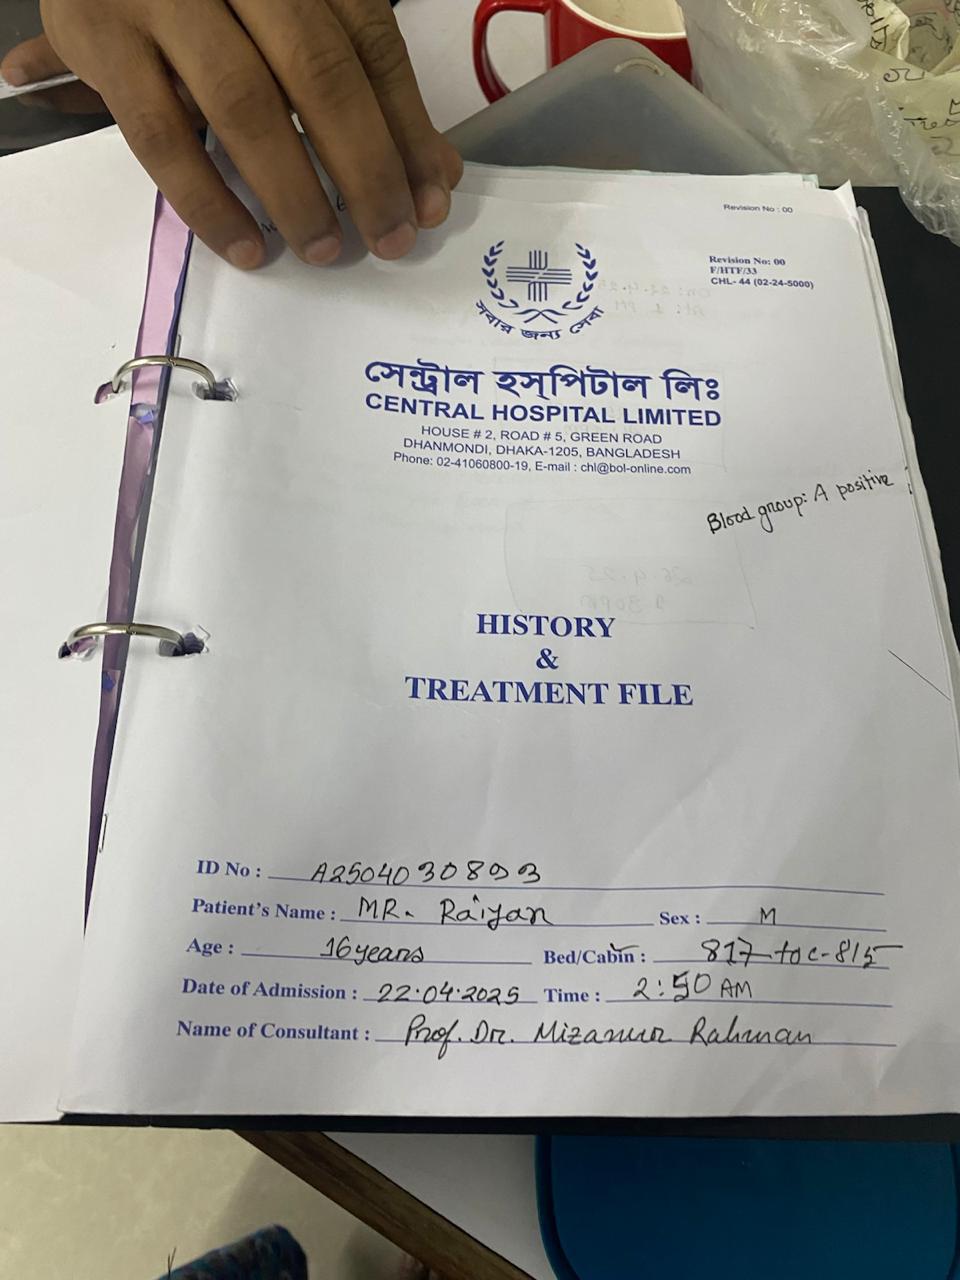 Revision No : 00
Revision No: 00
F/HTF/33
CHL- 44 (02-24-5000)
সবার জন্য সেবা
সেন্ট্রাল হস্পিটাল লিঃ
CENTRAL HOSPITAL LIMITED
HOUSE # 2, ROAD # 5, GREEN ROAD
DHANMONDI, DHAKA-1205, BANGLADESH
Phone: 02-41060800-19, E-mail : chl@bol-online.com
Blood group: A positive
HISTORY
&
TREATMENT FILE
ID No : A2504030893
Patient's Name : MR. Raiyan Sex : M
Age : 16 years Bed/Cabin : 817 to c-815
Date of Admission : 22.04.2025 Time : 2:50 AM
Name of Consultant : Prof. Dr. Mizanur Rahman